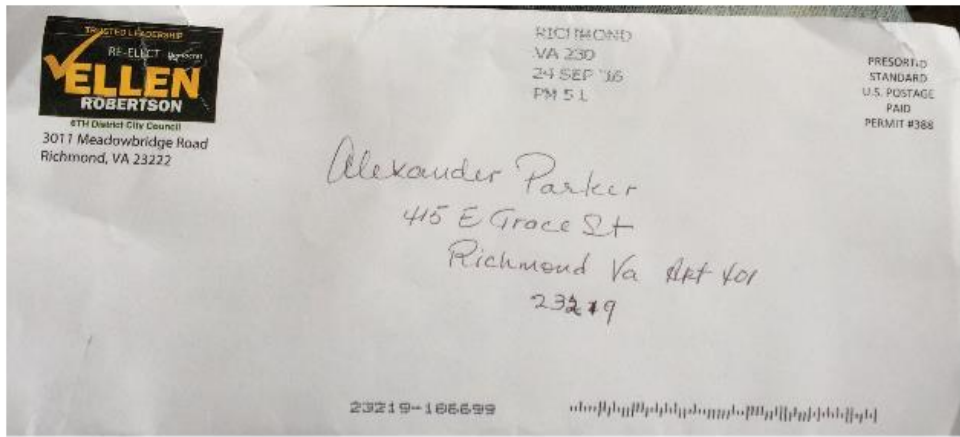 TRUSTED LEADERSHIP
RE-ELECT Democrat
ELLEN
ROBERTSON
6TH District City Council
3011 Meadowbridge Road
Richmond, VA 23222
RICHMOND
VA 230
24 SEP '16
PM 5 L
PRESORTED
STANDARD
U.S. POSTAGE
PAID
PERMIT #388
Alexander Parker
415 E Grace St
Richmond Va Apt 401
23219
23219-186699